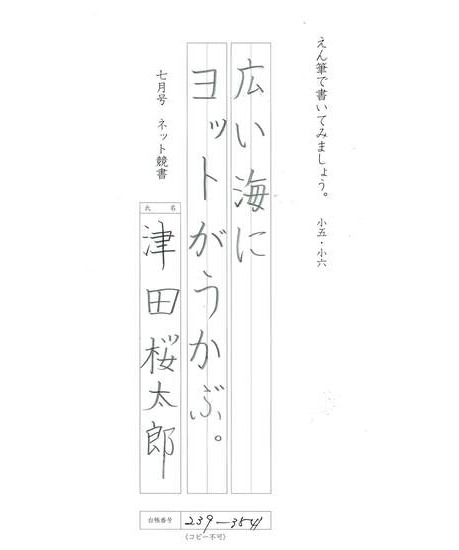 えん筆で書いてみましょう。 小五・小六
広い海に
ヨットがうかぶ。
七月号 ネット競書
氏名
津田桜太郎
台帳番号 239-3541
(コピー不可)